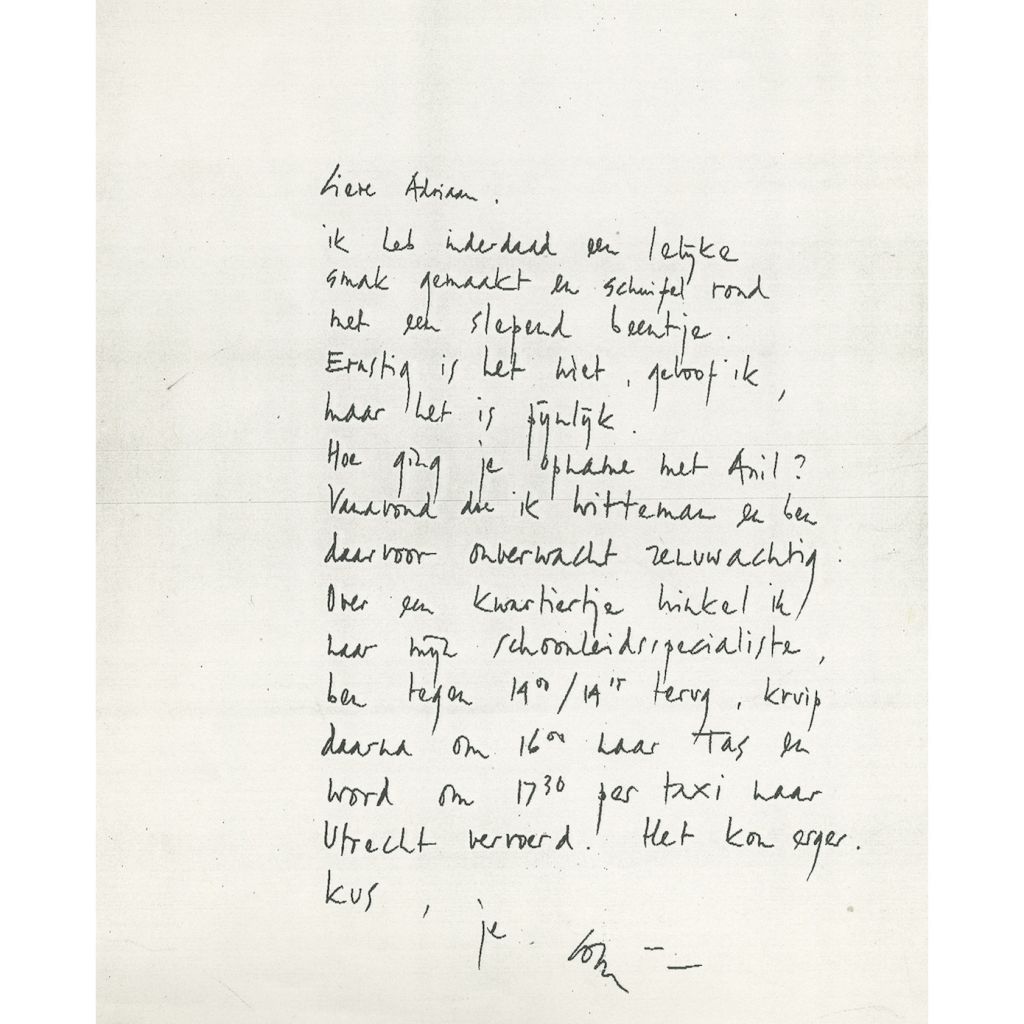 Lieve Adriaan.
ik heb inderdaad een lelijke
smak gemaakt en schuifel rond
met een slepend beentje.
Ernstig is het niet, geloof ik,
maar het is pijnlijk.
Hoe ging je opname met Anil?
Vanavond doe ik Witteman en ben
daarvoor onverwacht zenuwachtig.
Over een kwartiertje hinkel ik
naar mijn schoonheidsspecialiste,
ben tegen 14⁰⁰/14¹⁵ terug, kruip
daarna om 16⁰⁰ naar Tas en
word om 17³⁰ per taxi naar
Utrecht vervoerd. Het kon erger.
kus, je